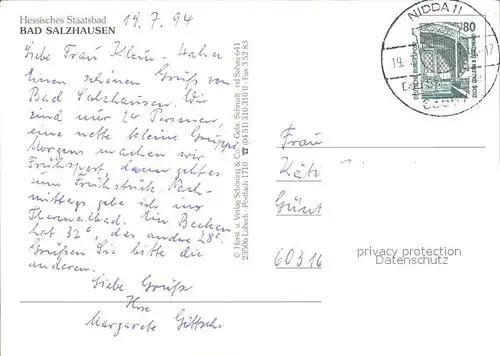 Hessisches Staatsbad
BAD SALZHAUSEN
19.7.94
Liebe Frau Klein-
Einen schönen Gruß von
Bad Salzhausen. Wir
sind nur 24 Personen,
eine nette kleine Gruppe.
Morgens machen wir
Frühsport, dann geht es
zum Frühstück. Nach-
mittags gehe ich ins
Thermalbad. Ein Becken
hat 32°, das andre 28°.
Grüßen Sie bitte die
anderen.
Liebe Grüße
Ihre
Margarete Göttsche
© Herst. u. Verlag Schöning & Co + Gebr. Schmidt
23506 Lübeck · Postfach 1710 · ☎ (04 51) 310 310 · Fax 3 52 83
NIDDA 11
80
DEUTSCHE BUNDESPOST
19.
Frau
Käti
Günt
60316
privacy protection
Datenschutz